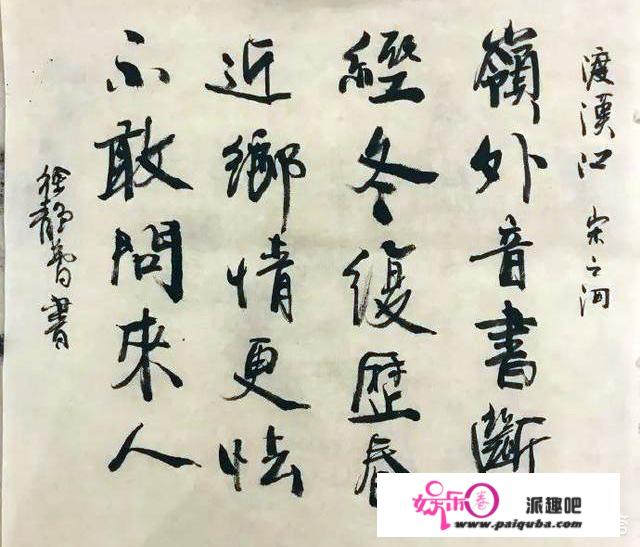 渡漢江 宋之问
嶺外音書斷
經冬復歷春
近鄉情更怯
不敢問來人
徐静書
娱乐圈 派趣吧
www.paiquba.com